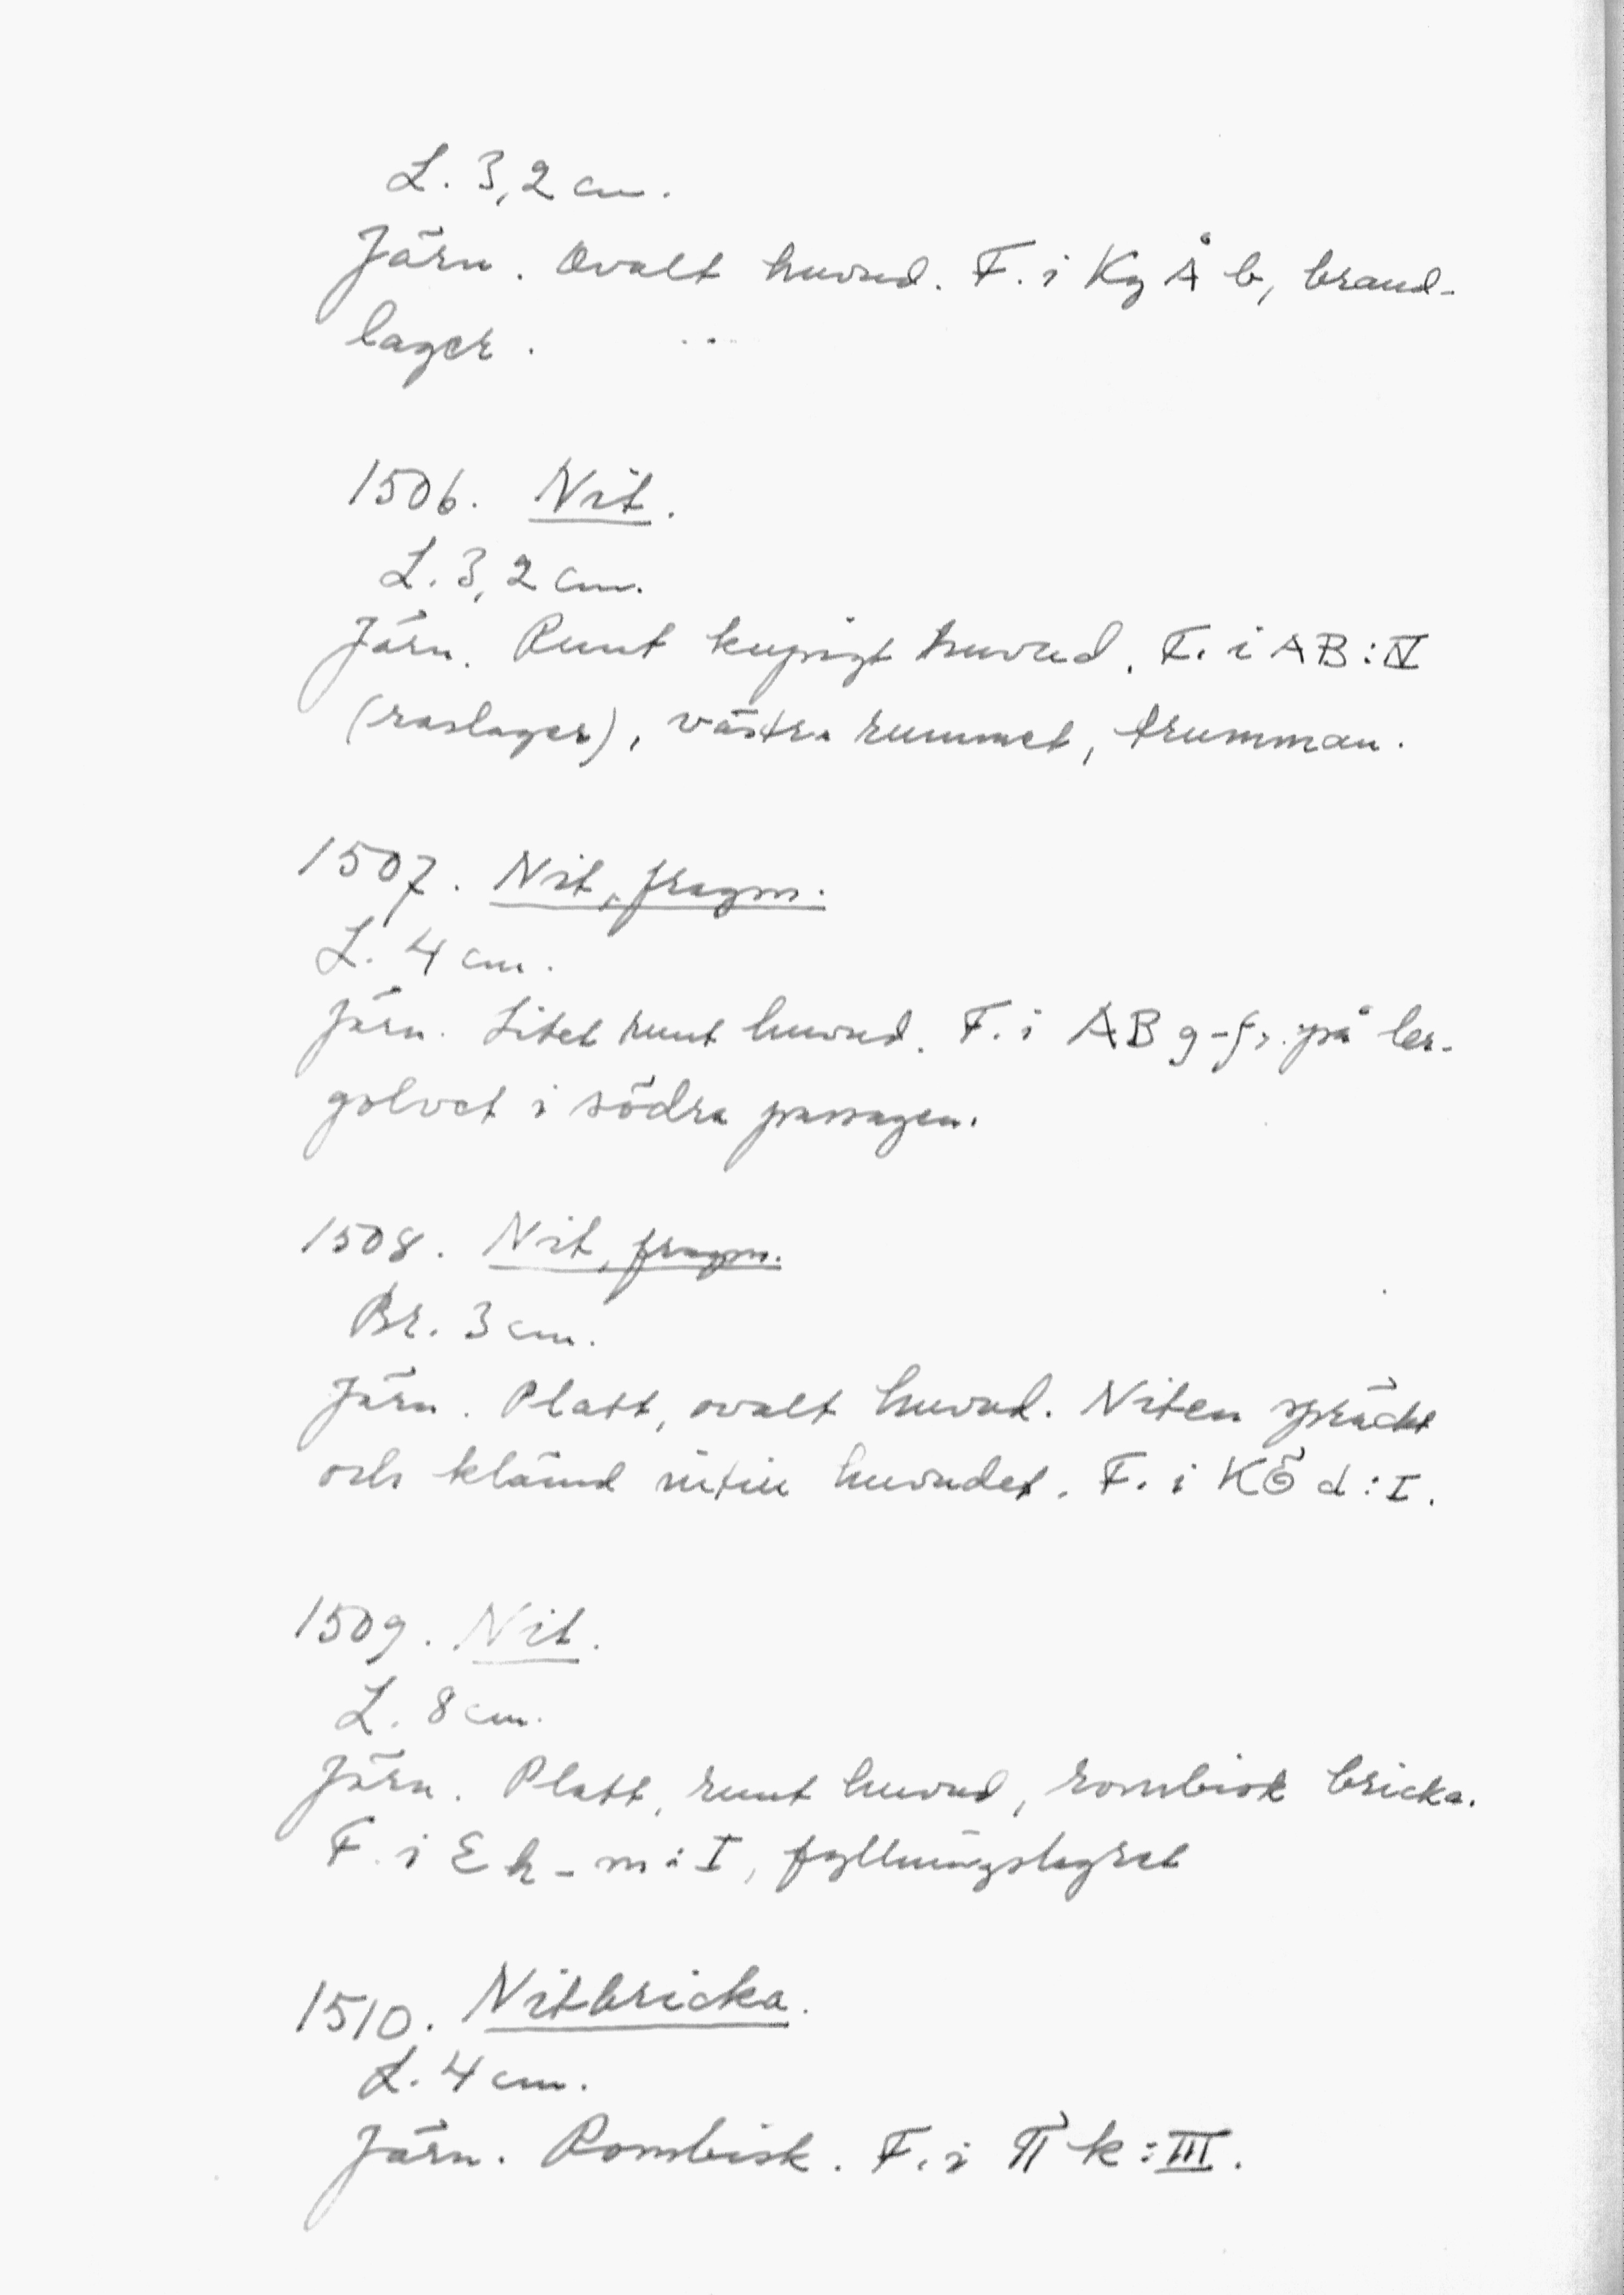 L. 3,2 cm.
Järn. Ovalt huvud. F. i Kg Å b, brand-
lager.
1506. Nit.
L. 3,2 cm.
Järn. Runt kupigt huvud. F. i AB:IV
(raslager), västra rummet, trumman.
1507. Nit, fragm.
L. 4 cm.
Järn. Litet runt huvud. F. i AB g-f, på ler-
golvet i södra passagen.
1508. Nit, fragm.
Br. 3 cm.
Järn. Platt, ovalt huvud. Niten spräckt
och klämd intill huvudet. F. i KÖ d:I.
1509. Nit.
L. 8 cm.
Järn. Platt, runt huvud, rombisk bricka.
F. i E h-m:I, fyllningslagret
1510. Nitbricka.
L. 4 cm.
Järn. Rombisk. F. i k:III.